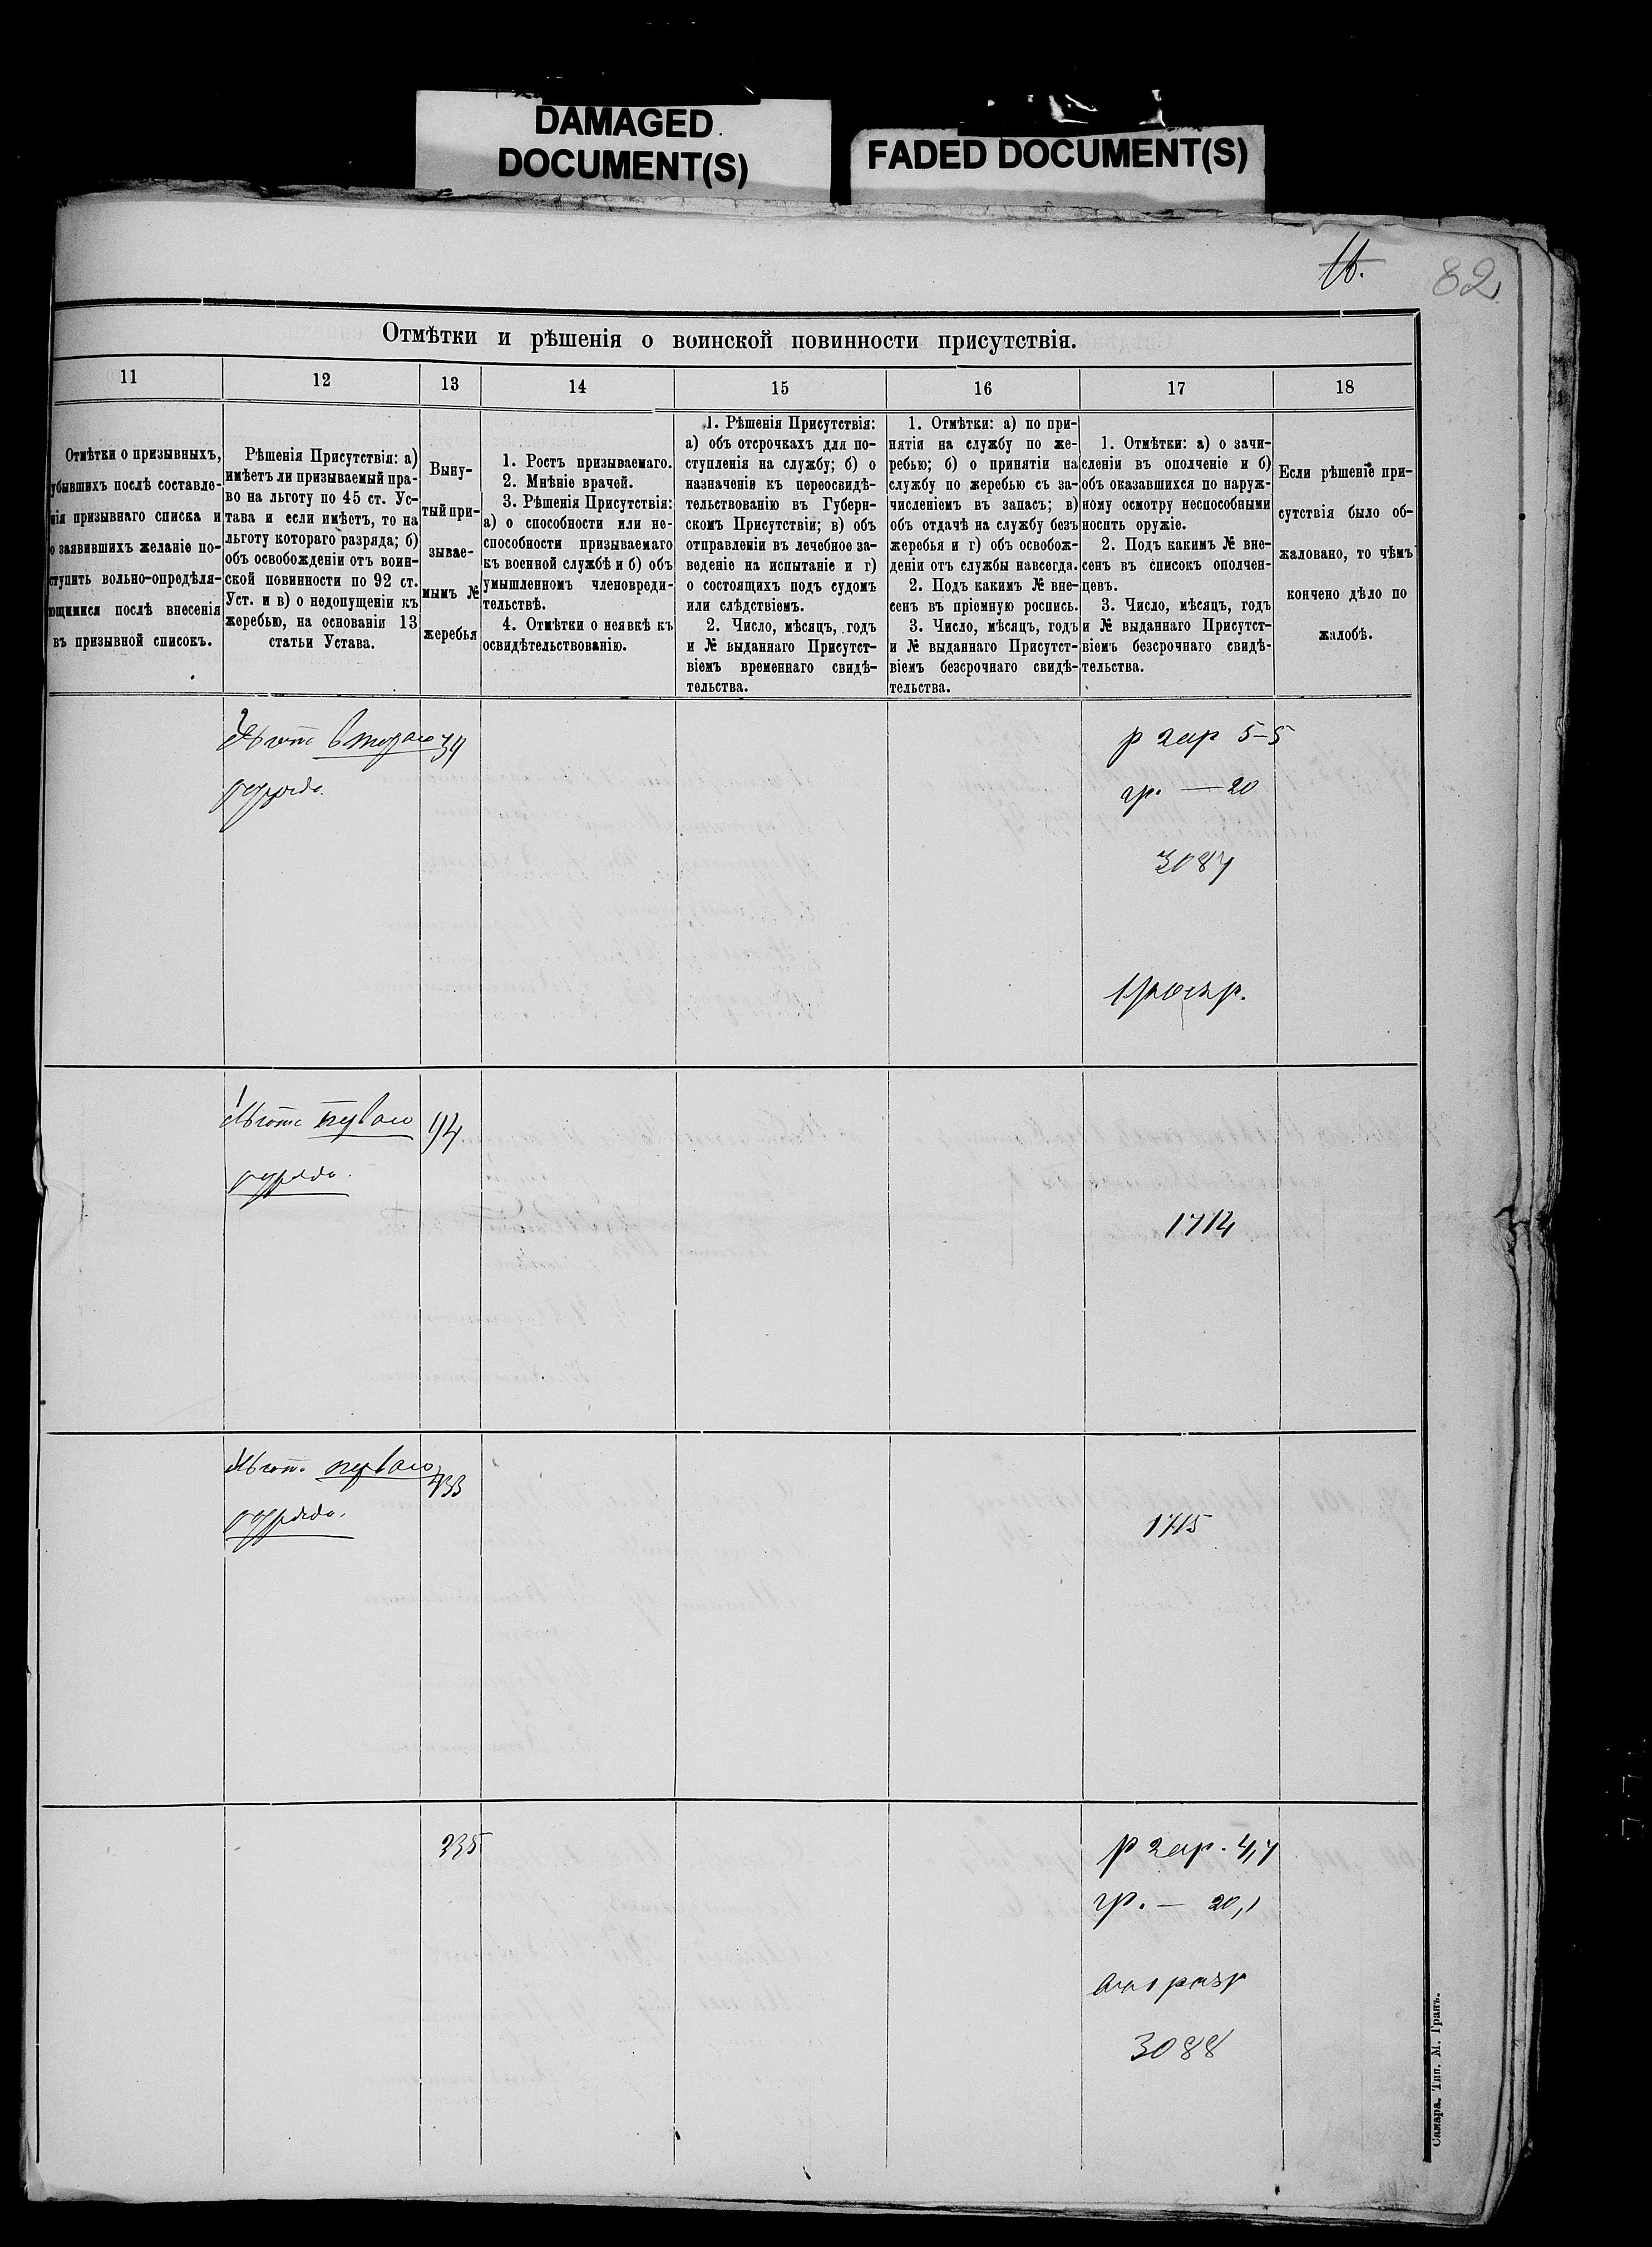 DAMAGED
DOCUMENT(S)
FADED DOCUMENT(S)
82
Отмѣтки и рѣшенія о воинской повинности присутствія.
11
12
13
14
15
16
17
18
Отмѣтки о призывныхъ,
убывшихъ послѣ составле-
нія призывнаго списка и
о заявившихъ желаніе по-
ступить вольно-опредѣля-
ющимися послѣ внесенія
въ призывной списокъ.
Рѣшенія Присутствія: а)
имѣетъ ли призываемый пра-
во на льготу по 45 ст. Ус-
тава и если имѣетъ, то на
льготу котораго разряда; б)
объ освобожденіи отъ воин-
ской повинности по 92 ст.
Уст. и в) о недопущеніи къ
жеребью, на основаніи 13
статьи Устава.
Выну-
тый при-
зывае-
мымъ №
жеребья
1. Ростъ призываемаго.
2. Мнѣніе врачей.
3. Рѣшенія Присутствія:
а) о способности или не-
способности призываемаго
къ военной службѣ и б) объ
умышленномъ членовреди-
тельствѣ.
4. Отмѣтки о неявкѣ къ
освидѣтельствованію.
1. Рѣшенія Присутствія:
а) объ отсрочкахъ для по-
ступленія на службу; б) о
назначеніи къ переосвидѣ-
тельствованію въ Губерн-
скомъ Присутствіи; в) объ
отправленіи въ лечебное за-
веденіе на испытаніе и г)
о состоящихъ подъ судомъ
или слѣдствіемъ.
2. Число, мѣсяцъ, годъ
и № выданнаго Присутст-
віемъ временнаго свидѣ-
тельства.
1. Отмѣтки: а) по при-
нятія на службу по же-
ребью; б) о принятіи на
службу по жеребью съ за-
численіемъ въ запасъ; в)
объ отдачѣ на службу безъ
жеребья и г) объ освобож-
деніи отъ службы навсегда.
2. Подъ какимъ № вне-
сенъ въ пріемную роспись.
3. Число, мѣсяцъ, годъ
и № выданнаго Присутст-
віемъ безсрочнаго свидѣ-
тельства.
1. Отмѣтки: а) о зачи-
сленіи въ ополченіе и б)
объ оказавшихся по наруж-
ному осмотру неспособными
носить оружіе.
2. Подъ какимъ № вне-
сенъ въ списокъ ополчен-
цевъ.
3. Число, мѣсяцъ, годъ
и № выданнаго Присутст-
віемъ безсрочнаго свидѣ-
тельства.
Если рѣшеніе при-
сутствія было об-
жаловано, то чѣмъ
кончено дѣло по
жалобѣ.
втораго
разряда.
34
5-5
гр. — 20
3087
1 разр.
перваго
разряда.
94
1714
перваго
разряда.
433
1715
235
4,7
гр. — 20,1
1 разр
3088
Самара. Тип. М. Гранъ.